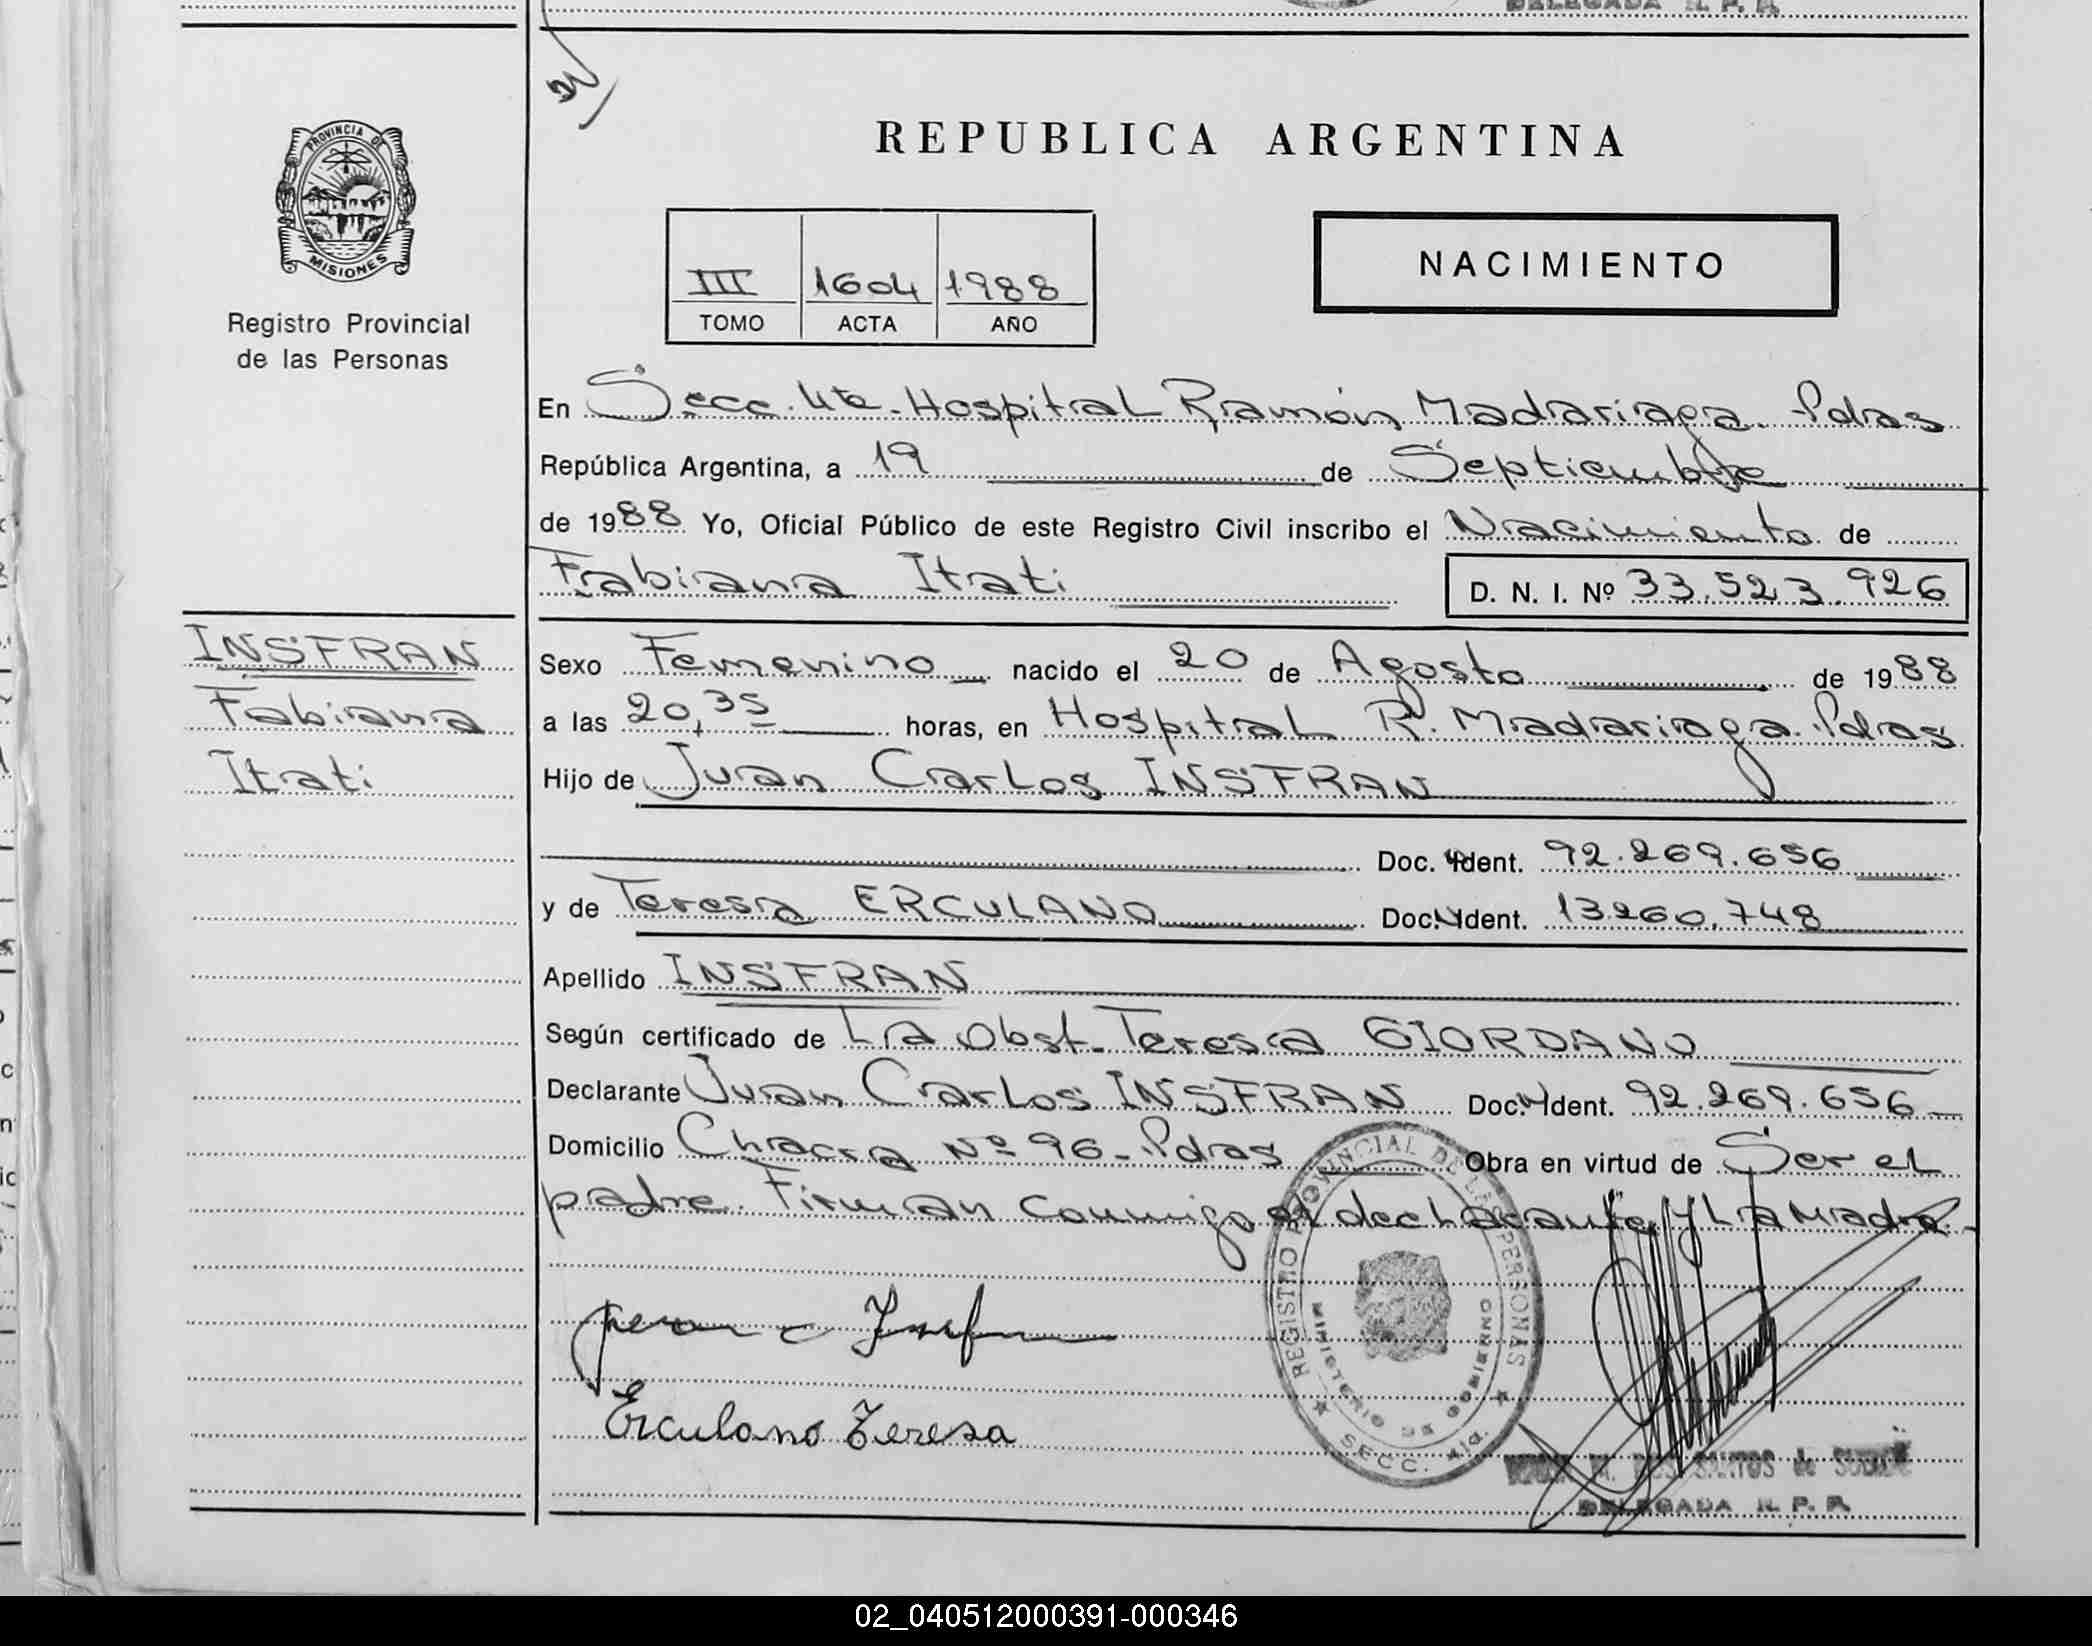 DELEGADA R. P. P.
REPUBLICA ARGENTINA
PROVINCIA DE
MISIONES
Registro Provincial
de las Personas
III 1604 1988
TOMO ACTA AÑO
NACIMIENTO
En Secc. 4ta. Hospital Ramón Madariaga. Pdas
República Argentina, a 19 de Septiembre
de 1988 Yo, Oficial Público de este Registro Civil inscribo el Nacimiento de
Fabiana Itati
D. N. I. Nº 33.523.926
INSFRAN
Fabiana
Itati
Sexo Femenino nacido el 20 de Agosto de 1988
a las 20,35 horas, en Hospital R. Madariaga. Pdas
Hijo de Juan Carlos INSFRAN
Doc. Ident. 92.269.656
y de Teresa ERCULANO Doc. Ident. 13.260.748
Apellido INSFRAN
Según certificado de La Obst. Teresa GIORDANO
Declarante Juan Carlos INSFRAN Doc. Ident. 92.269.656
Domicilio Chacra Nº 96 - Pdas Obra en virtud de Ser el
padre. Firman conmigo el declarante y La Madre.
REGISTRO PROVINCIAL DE LAS PERSONAS
MINISTERIO DE GOBIERNO
SECC. 4ta.
Juan C Insfran
Erculano Teresa
M. DOS SANTOS de
DELEGADA R. P. P.
02_040512000391-000346